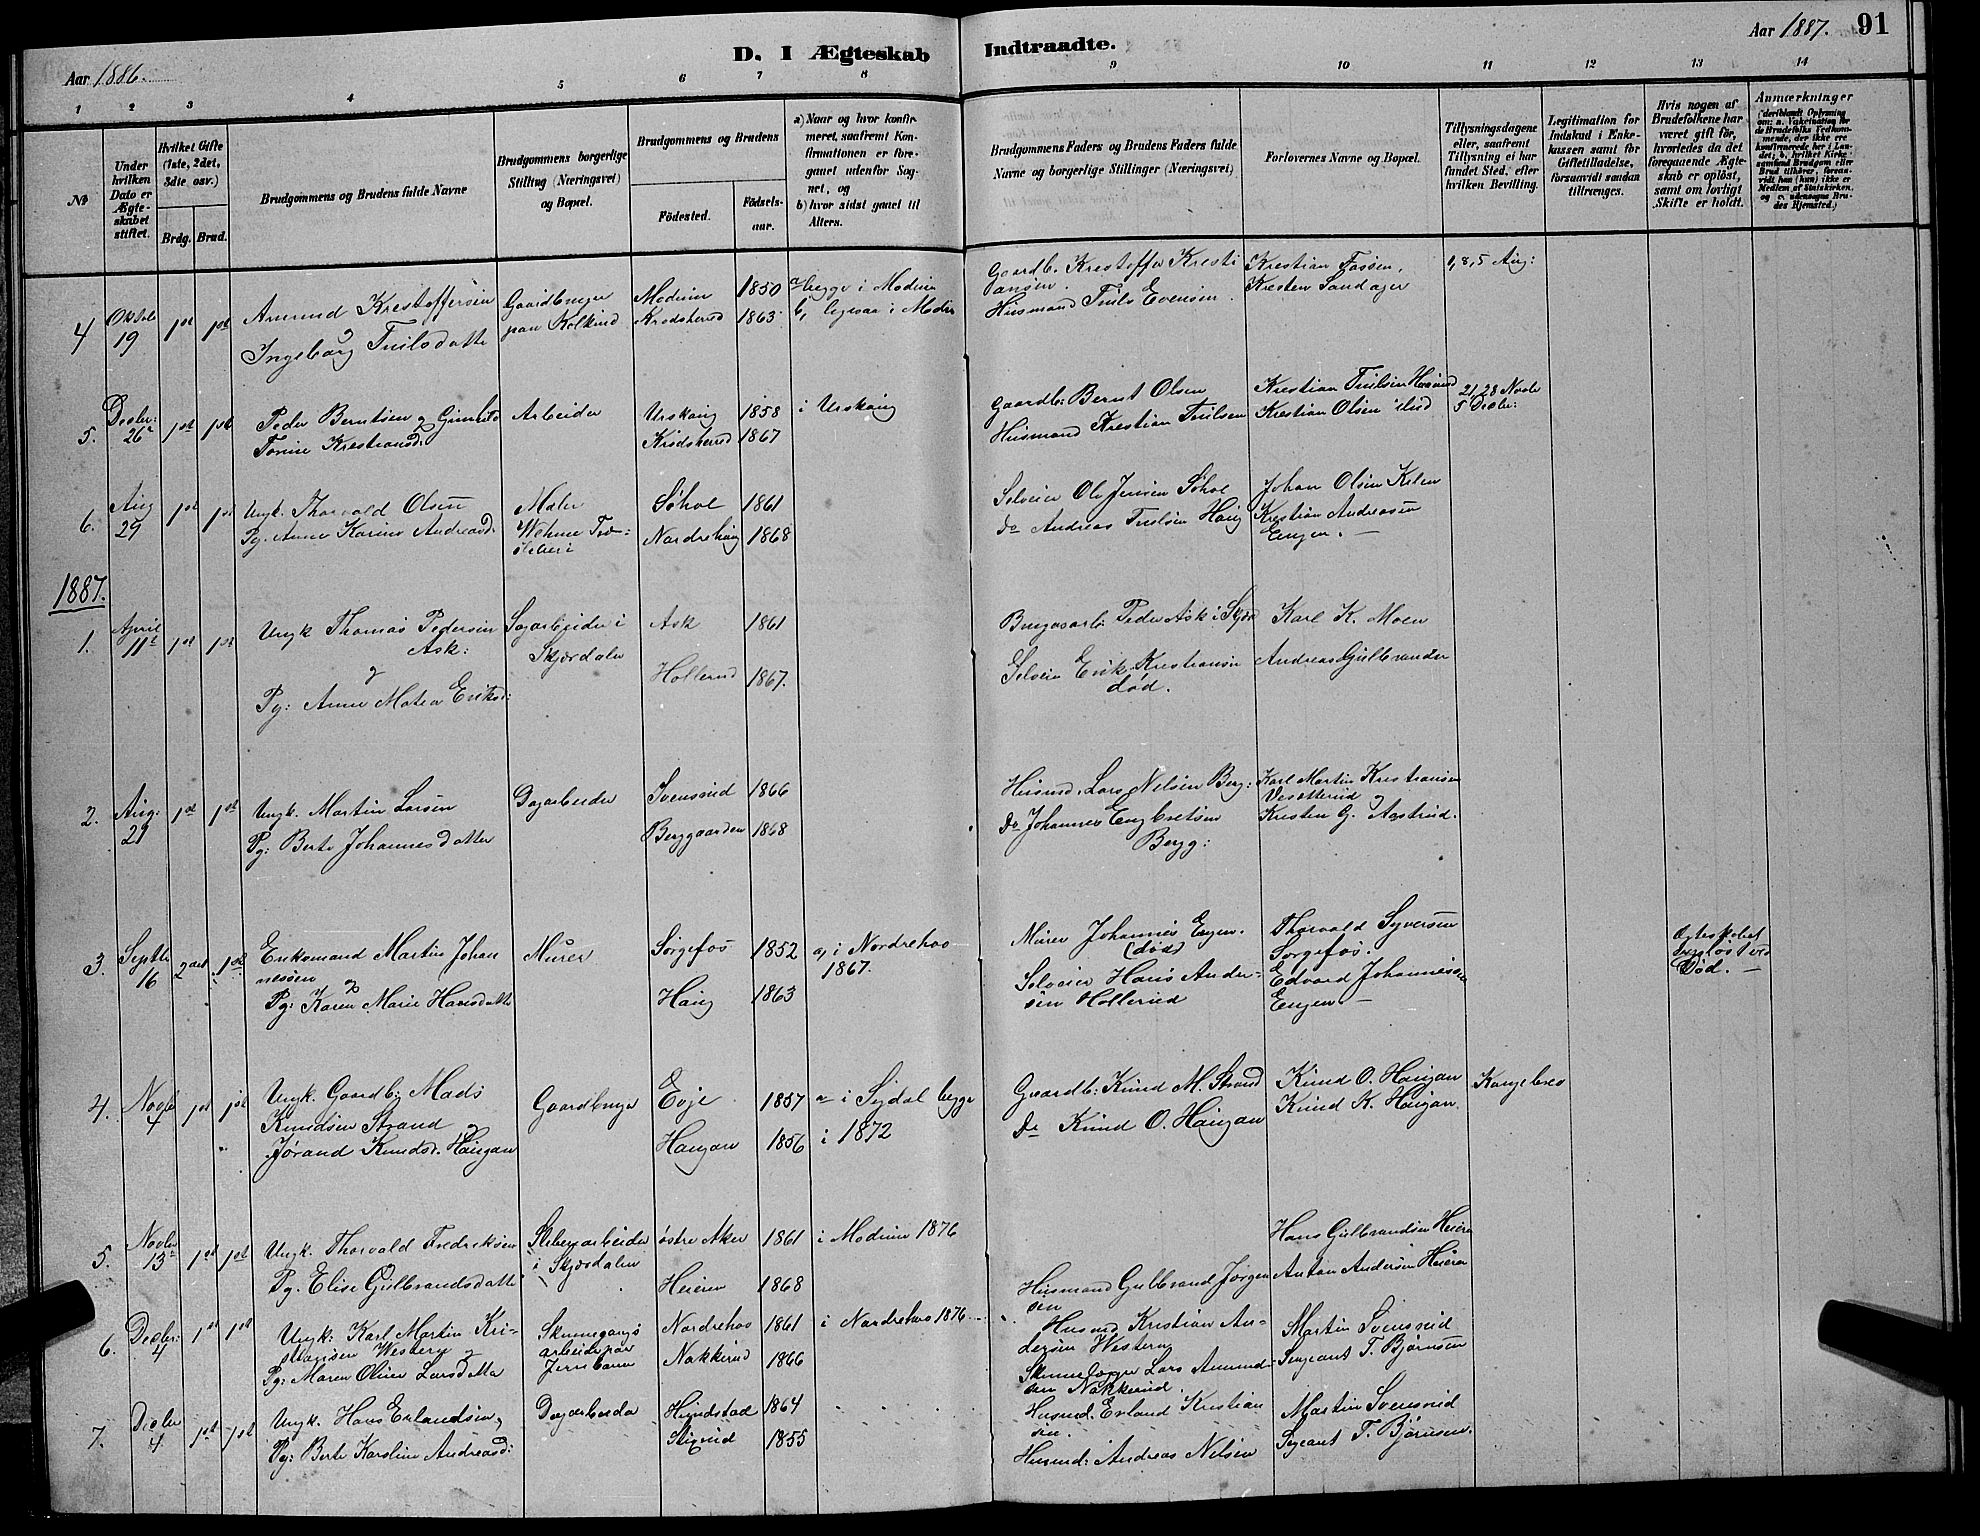 Aar 1886.
D. I Ægteskab Indtraadte.
Aar 1887. 91
1 2 3 4 5 6 7 8 9 10 11 12 13 14
№
Under hvilken Dato er Ægteskabet stiftet.
Hvilket Gifte (1ste, 2det, 3die osv.)
Brdg. Brud.
Brudgommens og Brudens fulde Navne
Brudgommens borgerlige Stilling (Næringsvei) og Bopæl.
Brudgommens og Brudens
Födested.
Födselsaar.
a) Naar og hvor konfirmeret, saafremt Konfirmationen er foregaaet udenfor Sognet, og
b) hvor sidst gaaet til Alters.
Brudgommens Faders og Brudens Faders fulde Navne og borgerlige Stillinger (Næringsvei)
Forlovernes Navne og Bopæl.
Tillysningsdagene eller, saafremt Tillysning ei har fundet Sted, efter hvilken Bevilling.
Legitimation for Indskud i Enkekassen samt for Giftetilladelse, forsaavidt saadan tiltrænges.
Hvis nogen af Brudefolkene har været gift för, hvorledes da det foregaaende Ægteskab er oplöst, samt om lovligt Skifte er holdt.
Anmærkninger
4 Oktob 19 1st 1st
Amund Kristoffersen
Ingeborg Truilsdatter
Gaardbruger
Modum 1850
Krødsherred 1863
a, begge i Modum
b, ligesaa i Modum
Gaardb. Kristoffer Kristiansen.
Husmand Truls Evensen.
Kristian Fossen.
Kristen Sandager
1, 8, 5 Aug:
5. Decbr: 26 1st 1st
Peder Berntsen og
Torine Kristiansd.
Arbeider
Urskoug 1858
Krødsherred 1867
i Urskoug
Gaardb: Bernt Olsen
Husmand Kristian Truilsen
Kristian Truilsen
Kristian Olsen
21, 28 Novbr
5 Decbr:
6. Aug 29 1st 1st
Ungk. Thorvald Olsen
Pg. Anne Karine Andreasd.
Maler
Søhol 1861
Nordrehaug 1868
Selveier Ole Jensen Søhol
Do Andreas Truilsen Haug
Johan Olsen
Kristian Andreasen
Engen. —
1887.
1. April 11te 1st 1st
Ungk Thomas Pedersen
Ask:
og
Pg: Anne Matea Eriksd:
Sagarbeider i
Skjærdalen
Ask 1861
Hollerud 1867.
Brugsarb: Peder Ask i
Selveier Erik Kristiansen
død.
Karl K. Moen
Andreas Gulbrandsen
2. Aug: 29 1st 1st
Ungk. Martin Larsen
Pg: Berte Johannesdatter
Dagarbeider
Svensrud 1866
Berggaarden 1868
Husmd. Lars Nilsen Berg:
Do Johannes Engbretsen
Berg:
Karl Martin Kristiansen
Vesætterud og
Kristen G. Aastrud.
3. Septbr 16 2det 1st
Enkemand Martin Johannessen
og
Pg: Karen Marie Hansdatter
Murer
Sorgefos 1852
Haug 1863
a, i Nordrehov
1867.
Murer Johannes Engen.
(død)
Selveier Hans Andersen
Hollerud
Thorvald Syversen
Sorgefos.
Edvard Johannessen
Engen —
Ægteskabet
opløst ved
Død. —
4. Novbr 4 1st 1st
Ungk. Gaardbg Mads
Knudsen Strand
Jørand Knudsd. Haugan
Gaardbruger
Evje 1857
Haugan 1856
a i Sigdal begge
i 1872
Gaardb: Knud M. Strand
Do Knud O. Haugan
Knud O. Haugan
Knud K. Haugan.
Kongebrev
5. Novbr 13 1st 1st
Ungk. Thorvald Fredriksen
Pg. Elise Gulbrandsdatter
Sliberiarbeider
i Skjærdalen
østre Aker 1861
Heieren 1868
i Modum 1876
Husmand Gulbrand Jørgensen
Hans Gulbrandsen Heieren
Anton Andersen Heieren
6. Decbr: 4 1st 1st
Ungk: Karl Martin Kristiansen
Western og
Pg: Maren Oline Larsdatter
Skinnegangsarbeider paa
Jernbanen
Nordrehov 1861
Nakkerud 1866
i Nordrehov 1876
Husmd Kristian Andersen
Western
Skinnelægger Lars Amundsen
Nakkerud.
Martin Svensrud
Sergeant T. Bjørnsen
7. Decbr 4 1st 1st
Ungk. Hans Erlandsen,
Pg: Berte Karoline Andreasd:
Dagarbeider
Hundstad 1864
Stixrud 1855
Husmd. Erland Kristiansen.
Husmd: Andreas Nilsen
Martin Svensrud
Sergeant T. Bjørnsen.